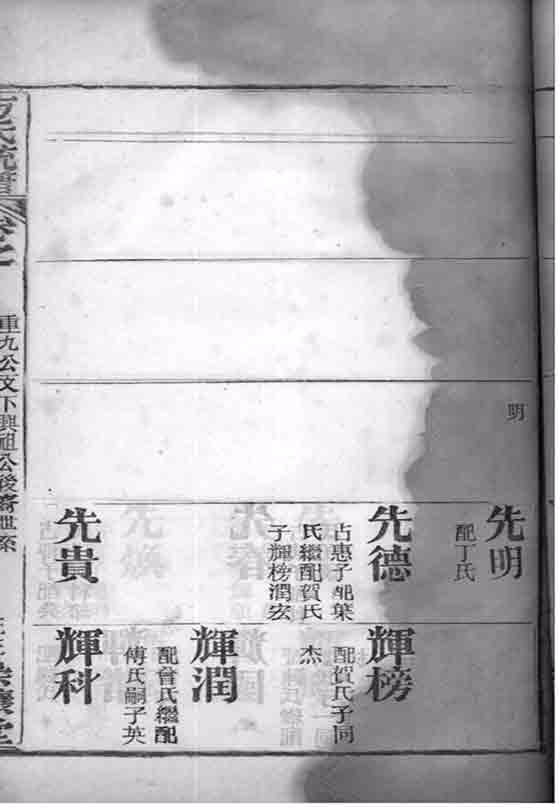 明
先明
配丁氏
先德
占惠子配葉
氏繼配賀氏
子輝榜潤宏
先貴
輝榜
配賀氏子同
杰
輝潤
配曾氏繼配
傅氏嗣子英
輝科
氏統譜
卷之
重九公支下興祖公後裔世系
堂